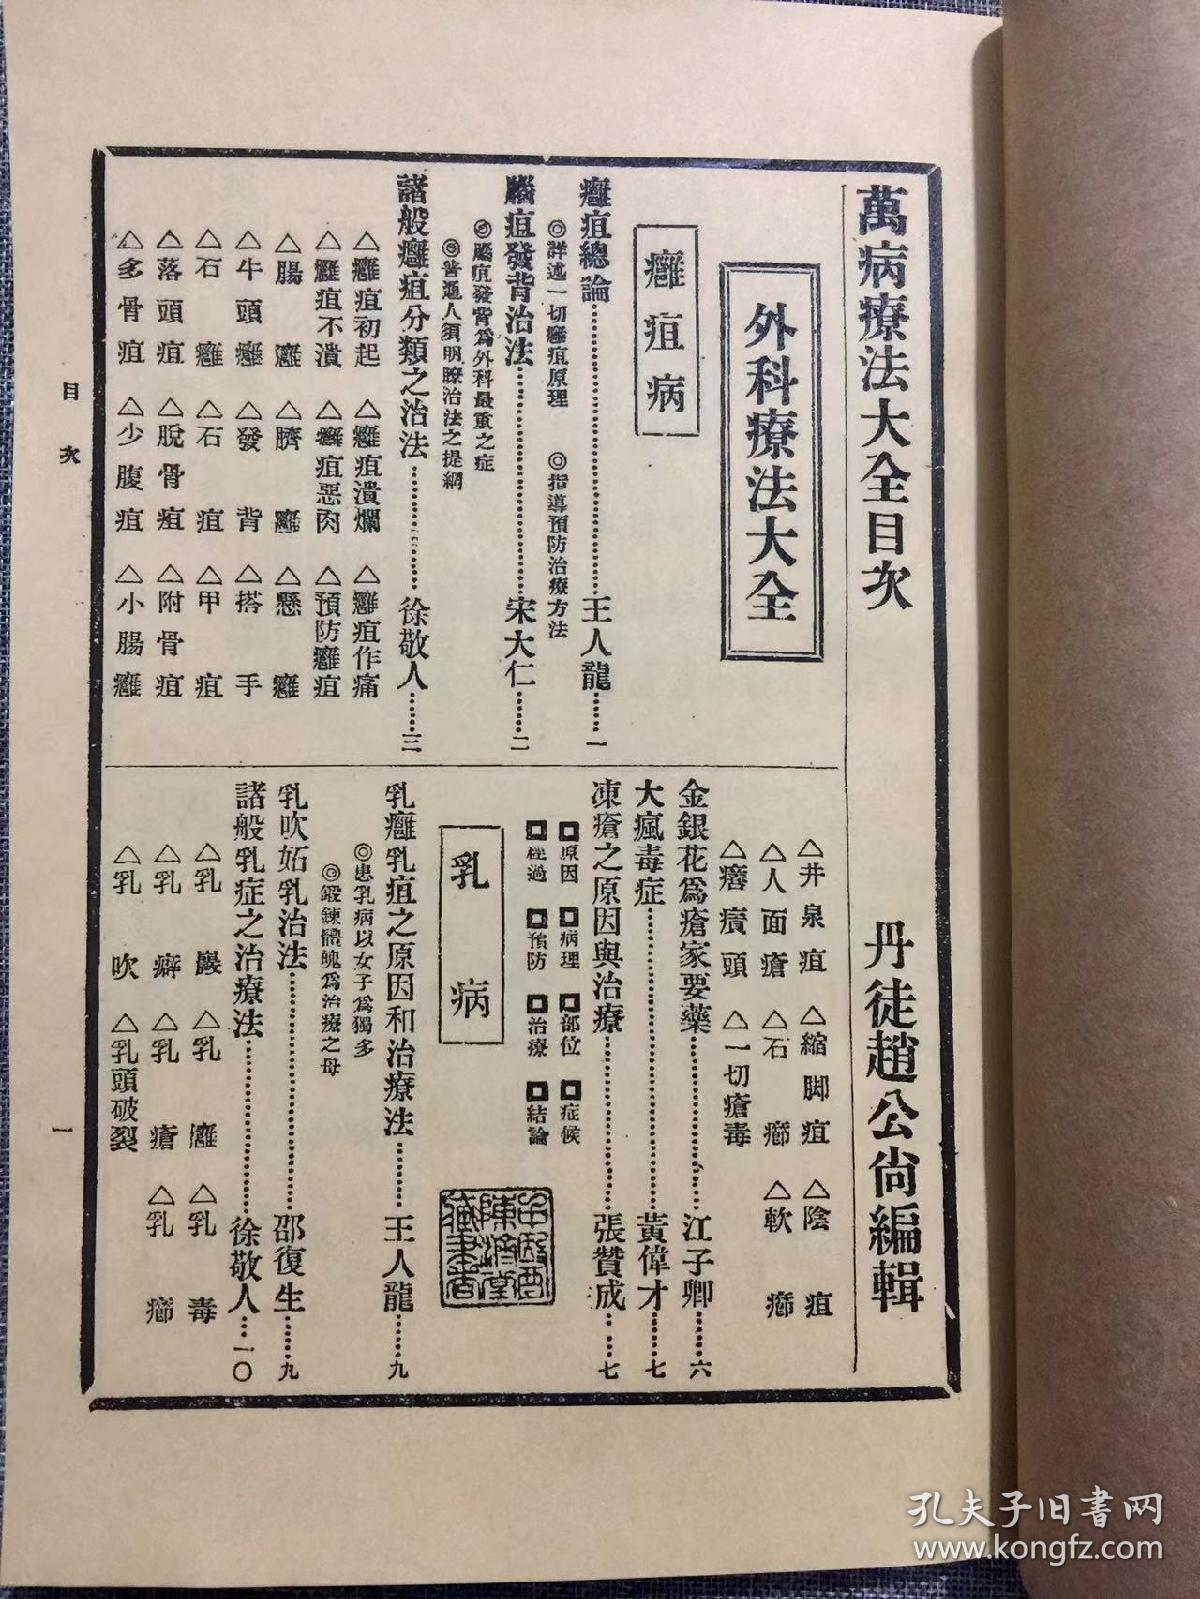 萬病療法大全目次
丹徒趙公尙編輯
外科療法大全
癰疽病
癰疽總論……王人龍……一
◎詳述一切癰疽原理 ◎指導預防治療方法
腦疽發背治法……宋大仁……二
◎腦疽發背爲外科最重之症
◎普通人須明瞭治法之提綱
諸般癰疽分類之治法……徐敬人……三
△癰疽初起 △癰疽潰爛 △癰疽作痛
△癰疽不潰 △癰疽惡肉 △預防癰疽
△腸癰 △臍癰 △懸癰
△牛頭癰 △發背 △搭手
△石癰 △石疽 △甲疽
△落頭疽 △脫骨疽 △附骨疽
△多骨疽 △少腹疽 △小腸癰
△井泉疽 △縮脚疽 △陰疽
△人面瘡 △石癤 △軟癤
△瘩癀頭 △一切瘡毒
金銀花爲瘡家要藥……江子卿……六
大瘋毒症……黃偉才……七
凍瘡之原因與治療……張贊成……七
原因 病理 部位 症候
經過 預防 治療 結論
乳病
乳癰乳疽之原因和治療法……王人龍……九
◎患乳病以女子爲獨多
◎鍛鍊體魄爲治療之母
乳吹妬乳治法……邵復生……九
諸般乳症之治療法……徐敬人……一〇
△乳巖 △乳癰 △乳毒
△乳癖 △乳瘡 △乳癤
△乳吹 △乳頭破裂
目次
一
孔夫子旧书网
www.kongfz.com